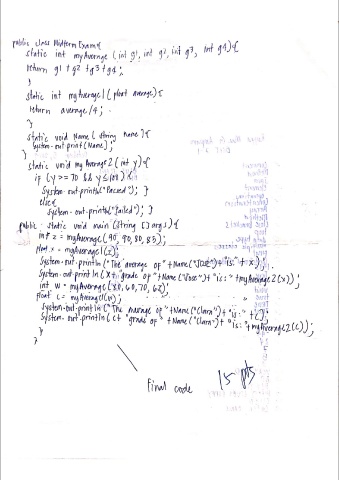 public class Midterm Exam {
static int myAverage (int g1, int g2, int g3, int g4) {
return g1 + g2 + g3 + g4;
}
static int myAverage1 (float average) {
return average /4;
}
static void Name ( string name ) {
System.out.print (Name);
}
static void myAverage2 (int y) {
if (y >= 70 && y ≤ 100) {
System.out.println ("Passed"); }
else {
System.out.println ("Failed"); }
public static void main (String [] args) {
int z = myAverage (90, 90, 80, 80);
float x = myAverage1 (z);
System.out.println ("The average of " + Name ("Jose") + "is: " + x);
System.out.println (x + "grade of " + Name ("Jose") + "is: " + myAverage2 (x));
int w = myAverage (80, 60, 70, 62);
float c = myAverage1 (w);
System.out.println ("The average of " + Name ("Clara") + "is: " + c);
System.out.println (c + "grade of " + Name ("Clara") + "is: " + myAverage2 (c));
}
}
Final code
15 pts